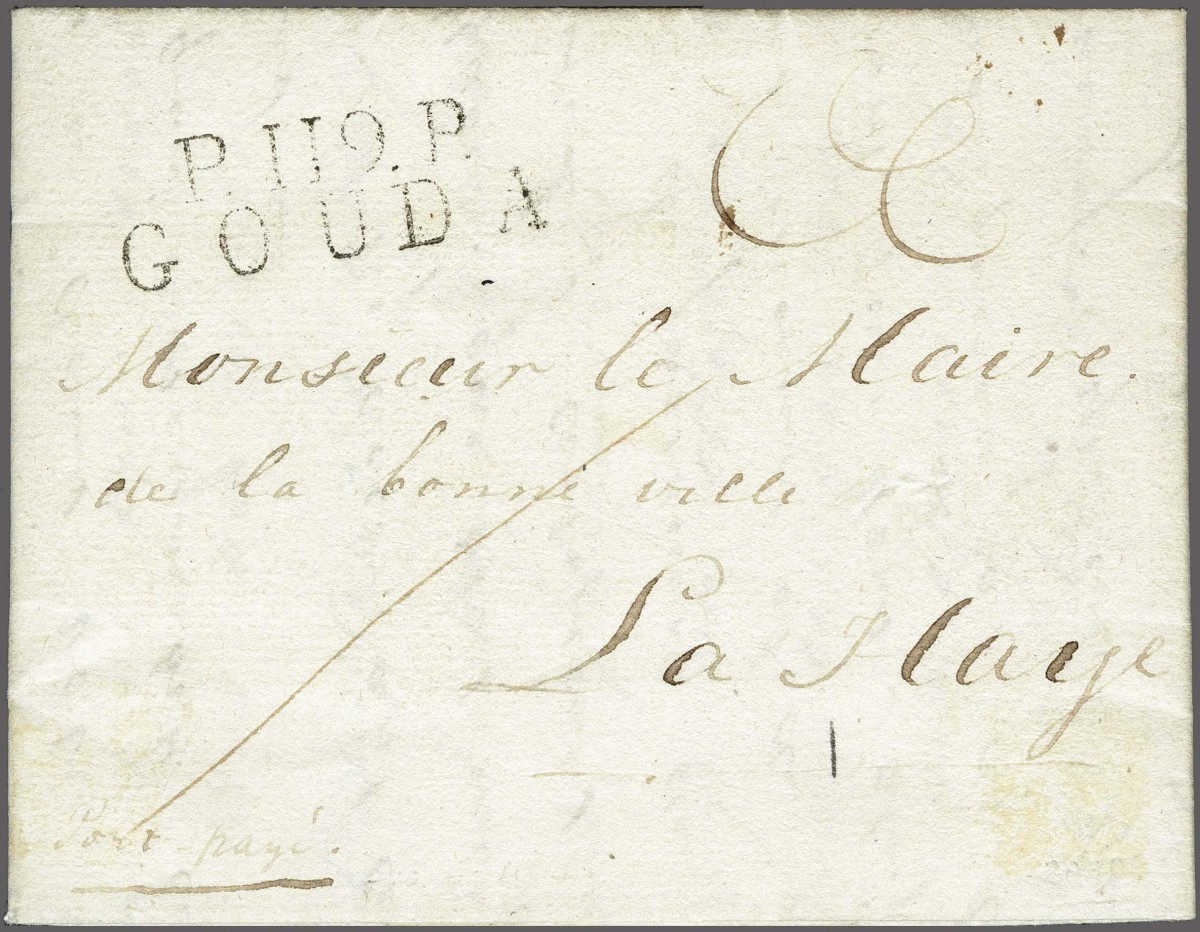 P.119.P.
GOUDA
Monsieur le Maire.
de la bonne ville
La Haye
Port payé.